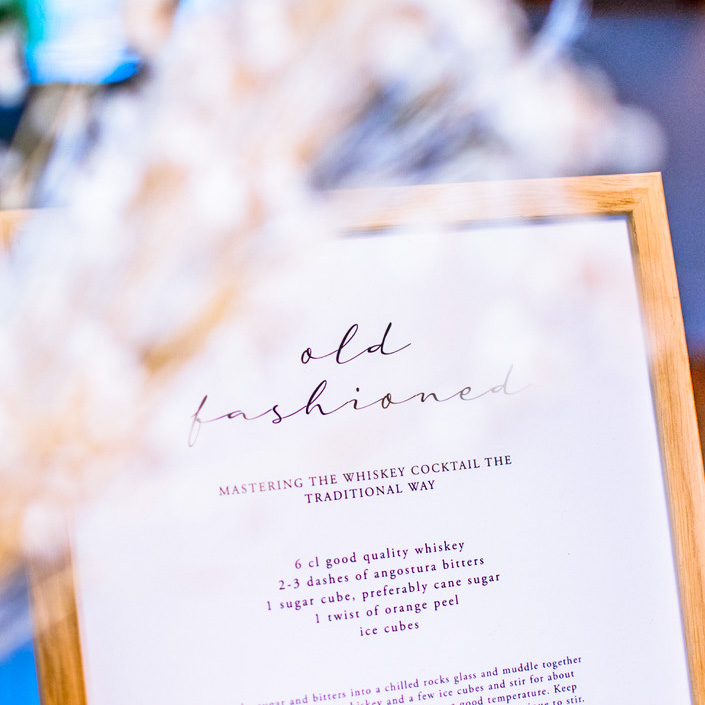 old
fashioned
MASTERING THE WHISKEY COCKTAIL THE
TRADITIONAL WAY
6 cl good quality whiskey
2-3 dashes of angostura bitters
1 sugar cube, preferably cane sugar
1 twist of orange peel
ice cubes
sugar and bitters into a chilled rocks glass and muddle together
and a few ice cubes and stir for about
good temperature. Keep
to stir.